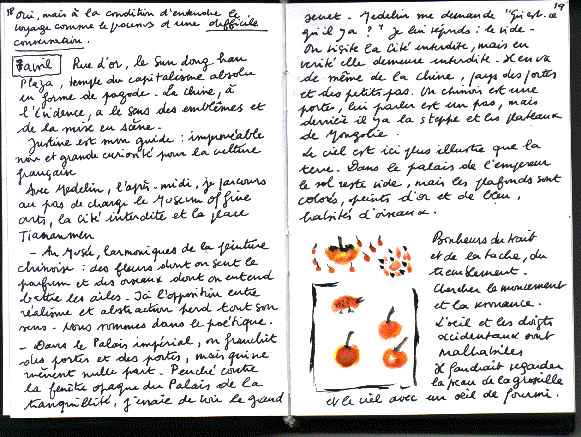 18 Oui, mais à la condition d'entendre le
voyage comme le parcours d'une difficile
conversation.
7 avril Rue d'or, le Sun dong han
Plaza, temple du capitalisme absolu
en forme de pagode. La Chine, à
l'évidence, a le sens des emblèmes et
de la mise en scène.
Justine est mon guide : imperméable
noir et grande curiosité pour la culture
française
Avec Medelin, l'après-midi, je parcours
au pas de charge le Museum of fine
arts, la Cité interdite et la place
Tiananmen
- Au Musée, harmoniques de la peinture
chinoise : des fleurs dont on sent le
parfum et des oiseaux dont on entend
battre les ailes. Ici l'opposition entre
réalisme et abstraction perd tout son
sens. Nous sommes dans le poétique.
- Dans le Palais impérial, on franchit
des portes et des portes, mais qui ne
mènent nulle part. Penché contre
la fenêtre opaque du Palais de la
tranquillité, j'essaie de voir le grand
19
secret. Medelin me demande "Qu'est-ce
qu'il y a ?" Je lui réponds : le vide.
On visite la Cité interdite, mais en
vérité elle demeure interdite. Il en va
de même de la Chine, pays des portes
et des petits pas. Un chinois est une
porte, lui parler est un pas, mais
derrière il y a la steppe et les plateaux
de Mongolie.
Le ciel est ici plus illustre que la
terre. Dans le palais de l'empereur
le sol reste vide, mais les plafonds sont
colorés, peints d'or et de bleu,
habités d'oiseaux.
Bonheurs du trait
et de la tache, du
tremblement.
Chercher le mouvement
et la romance.
L'oeil et les doigts
occidentaux sont
malhabiles
Il faudrait regarder
la peau de la groseille
et le ciel avec un oeil de fourmi.